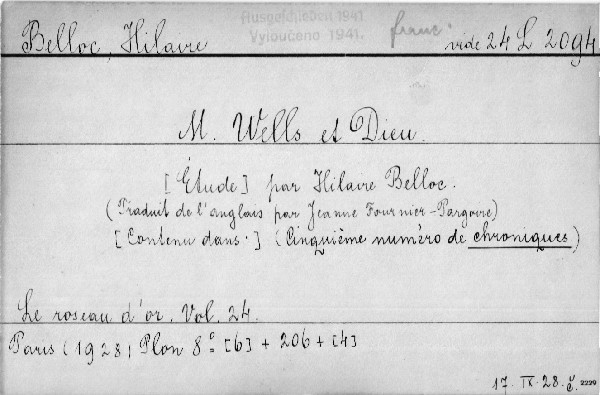 Ausgeschieden 1941
Vyloučeno 1941.
franc.
Belloc, Hilaire
vide 24 L 2094
M. Wells et Dieu.
[Étude] par Hilaire Belloc.
(Traduit de l'anglais par Jeanne Fournier-Pargoire)
[Contenu dans·] (Cinquième numéro de chroniques)
Le roseau d'or. Vol. 24.
Paris (1928) Plon 8° [6] + 206 + [4]
17. IX. 28. č. 2229